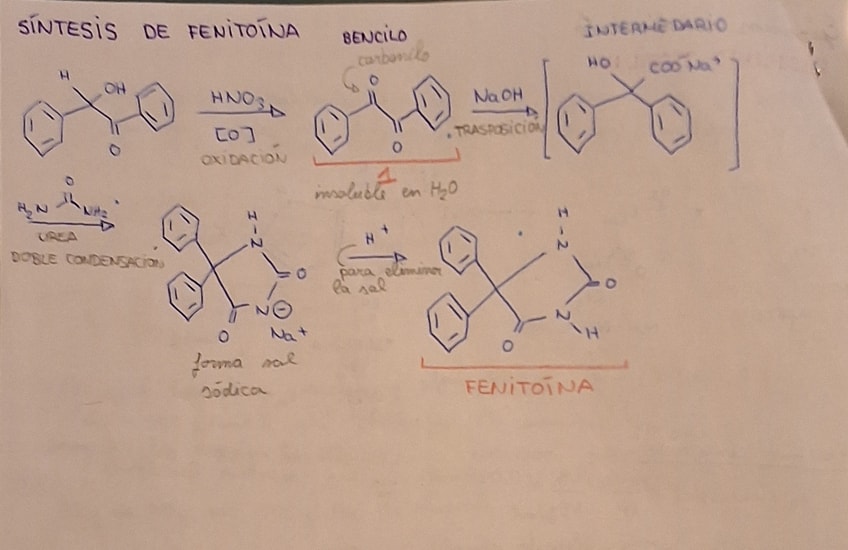 SÍNTESIS DE FENITOÍNA
BENCILO
INTERMEDARIO
carbonilo
H
OH
O
HNO₃
[O]
OXIDACIÓN
O
O
NaOH
TRASPOSICIÓN
HO
COO⁻Na⁺
1
insoluble en H₂O
O
H₂N
NH₂
UREA
DOBLE CONDENSACIÓN
H
N
O
N⊖
O
Na⁺
forma sal
sódica
H⁺
para eliminar
la sal
H
N
O
N
H
O
FENITOÍNA